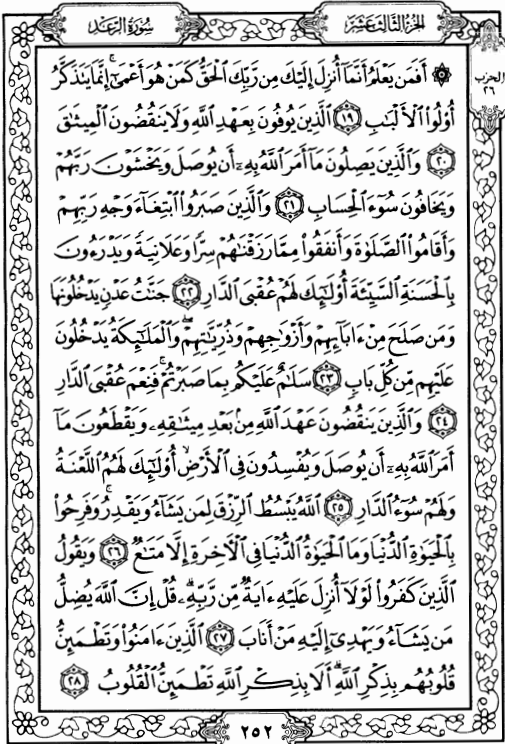 الجزء الثالث عشر سورة الرعد
الحزب
٢٦
۞ أَفَمَن يَعْلَمُ أَنَّمَآ أُنزِلَ إِلَيْكَ مِن رَّبِّكَ ٱلْحَقُّ كَمَنْ هُوَ أَعْمَىٰٓ ۚ إِنَّمَا يَتَذَكَّرُ
أُو۟لُوا۟ ٱلْأَلْبَٰبِ ١٩ ٱلَّذِينَ يُوفُونَ بِعَهْدِ ٱللَّهِ وَلَا يَنقُضُونَ ٱلْمِيثَٰقَ
٢٠ وَٱلَّذِينَ يَصِلُونَ مَآ أَمَرَ ٱللَّهُ بِهِۦٓ أَن يُوصَلَ وَيَخْشَوْنَ رَبَّهُمْ
وَيَخَافُونَ سُوٓءَ ٱلْحِسَابِ ٢١ وَٱلَّذِينَ صَبَرُوا۟ ٱبْتِغَآءَ وَجْهِ رَبِّهِمْ
وَأَقَامُوا۟ ٱلصَّلَوٰةَ وَأَنفَقُوا۟ مِمَّا رَزَقْنَٰهُمْ سِرًّا وَعَلَانِيَةً وَيَدْرَءُونَ
بِٱلْحَسَنَةِ ٱلسَّيِّئَةَ أُو۟لَٰٓئِكَ لَهُمْ عُقْبَى ٱلدَّارِ ٢٢ جَنَّٰتُ عَدْنٍ يَدْخُلُونَهَا
وَمَن صَلَحَ مِنْ ءَابَآئِهِمْ وَأَزْوَٰجِهِمْ وَذُرِّيَّٰتِهِمْ ۖ وَٱلْمَلَٰٓئِكَةُ يَدْخُلُونَ
عَلَيْهِم مِّن كُلِّ بَابٍ ٢٣ سَلَٰمٌ عَلَيْكُم بِمَا صَبَرْتُمْ ۚ فَنِعْمَ عُقْبَى ٱلدَّارِ
٢٤ وَٱلَّذِينَ يَنقُضُونَ عَهْدَ ٱللَّهِ مِنۢ بَعْدِ مِيثَٰقِهِۦ وَيَقْطَعُونَ مَآ
أَمَرَ ٱللَّهُ بِهِۦٓ أَن يُوصَلَ وَيُفْسِدُونَ فِى ٱلْأَرْضِ ۙ أُو۟لَٰٓئِكَ لَهُمُ ٱللَّعْنَةُ
وَلَهُمْ سُوٓءُ ٱلدَّارِ ٢٥ ٱللَّهُ يَبْسُطُ ٱلرِّزْقَ لِمَن يَشَآءُ وَيَقْدِرُ ۚ وَفَرِحُوا۟
بِٱلْحَيَوٰةِ ٱلدُّنْيَا وَمَا ٱلْحَيَوٰةُ ٱلدُّنْيَا فِى ٱلْءَاخِرَةِ إِلَّا مَتَٰعٌ ٢٦ وَيَقُولُ
ٱلَّذِينَ كَفَرُوا۟ لَوْلَآ أُنزِلَ عَلَيْهِ ءَايَةٌ مِّن رَّبِّهِۦ ۗ قُلْ إِنَّ ٱللَّهَ يُضِلُّ
مَن يَشَآءُ وَيَهْدِىٓ إِلَيْهِ مَنْ أَنَابَ ٢٧ ٱلَّذِينَ ءَامَنُوا۟ وَتَطْمَئِنُّ
قُلُوبُهُم بِذِكْرِ ٱللَّهِ ۗ أَلَا بِذِكْرِ ٱللَّهِ تَطْمَئِنُّ ٱلْقُلُوبُ ٢٨
٢٥٢